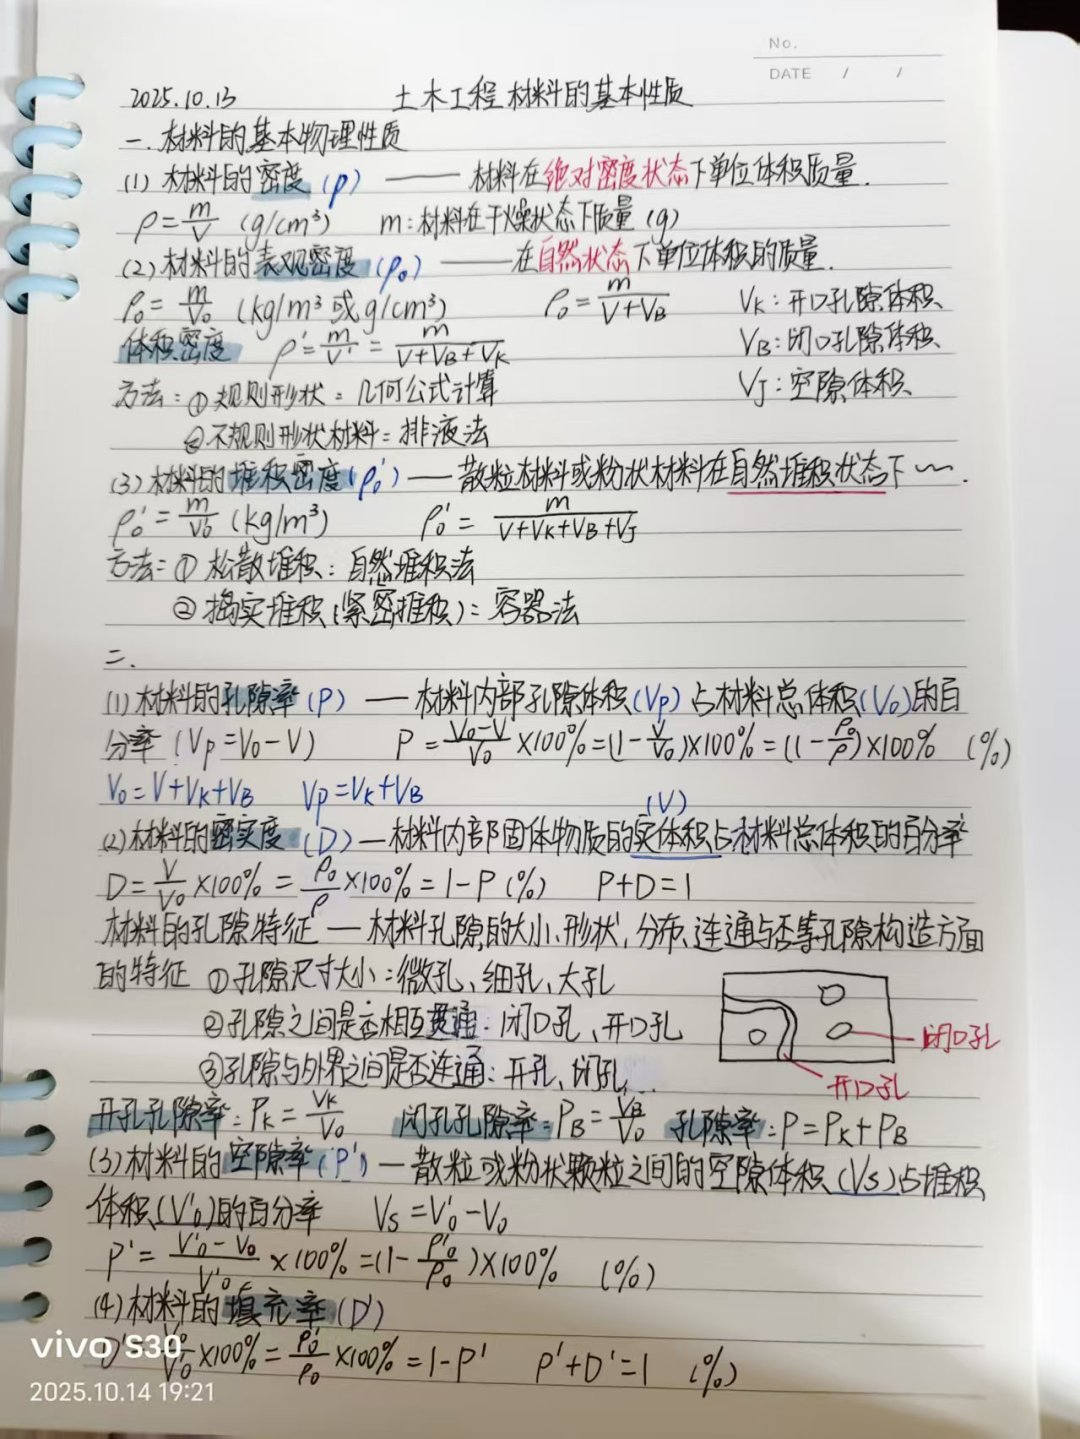 No.
DATE / /
2025.10.13 土木工程材料的基本性质
一.材料的基本物理性质
(1) 材料的密度(ρ) —— 材料在绝对密度状态下单位体积质量.
ρ=m/V (g/cm³) m:材料在干燥状态下质量(g)
(2)材料的表观密度(ρ₀) ——在自然状态下单位体积的质量.
ρ₀=m/V₀ (kg/m³或g/cm³) ρ₀=m/(V+VB) VK:开口孔隙体积
体积密度 ρ'=m/V'=m/(V+VB+VK) VB:闭口孔隙体积
方法:①规则形状:几何公式计算 VJ:空隙体积
②不规则形状材料:排液法
(3)材料的堆积密度(ρ₀')——散粒材料或粉状材料在自然堆积状态下~.
ρ₀'=m/V₀' (kg/m³) ρ₀'=m/(V+VK+VB+VJ)
方法:①松散堆积:自然堆积法
②捣实堆积(紧密堆积):容器法
二.
(1)材料的孔隙率(P) —材料内部孔隙体积(Vp)占材料总体积(V₀)的百
分率(Vp=V₀-V) P=(V₀-V)/V₀×100%=(1-V/V₀)×100%=(1-ρ₀/ρ)×100% (%)
V₀=V+VK+VB Vp=VK+VB (V)
(2)材料的密实度(D)—材料内部固体物质的实体积占材料总体积的百分率
D=V/V₀×100%=ρ₀/ρ×100%=1-P(%) P+D=1
材料的孔隙特征—材料孔隙的大小、形状、分布、连通与否等孔隙构造方面
的特征 ①孔隙尺寸大小:微孔、细孔、大孔
②孔隙之间是否相互贯通:闭口孔、开口孔
闭口孔
③孔隙与外界之间是否连通:开孔、闭孔...
开口孔
开孔孔隙率:PK=VK/V₀ 闭孔孔隙率:PB=VB/V₀ 孔隙率:P=PK+PB
(3)材料的空隙率(P')—散粒或粉状颗粒之间的空隙体积(Vs)占堆积
体积(V'₀)的百分率 Vs=V'₀-V₀
P'=(V'₀-V₀)/V'₀×100%=(1-ρ'₀/ρ₀)×100% (%)
(4)材料的填充率(D')
D'=V₀/V₀'×100%=ρ₀'/ρ₀×100%=1-P' P'+D'=1 (%)
vivo S30
2025.10.14 19:21